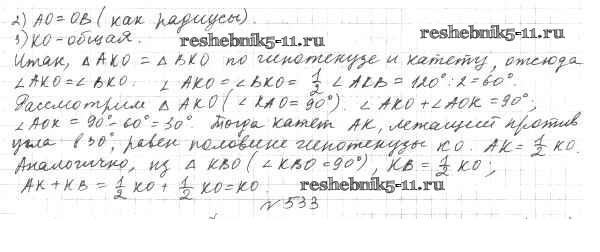 2) AO=OB (как радиусы).
3) KO - общая.
reshebnik5-11.ru
reshebnik5-11.ru
Итак, △AKO = △BKO по гипотенузе и катету, отсюда
∠AKO=∠BKO. ∠AKO=∠BKO= 1/2 ∠AKB = 120°:2=60°.
Рассмотрим △AKO (∠KAO=90°). ∠AKO+∠AOK=90°;
∠AOK = 90°-60°=30°. Тогда катет AK, лежащий против
угла в 30°, равен половине гипотенузы KO. AK=1/2 KO.
Аналогично, из △KBO (∠KBO=90°), KB=1/2 KO;
AK+KB = 1/2 KO + 1/2 KO=KO.
reshebnik5-11.ru
№533